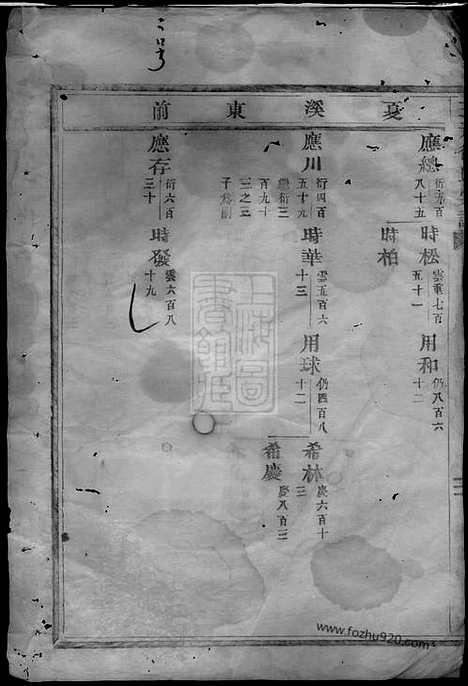 二号
夏溪東前
應總
衍九百
八十五
時松
雲重七百
五十一
用和
仍八百六
十二
時柏
應川
衍四百
五十九
繼衍三
百九十
三之三
子為嗣
時華
雲五百六
十三
用球
仍四百八
十二
希林
慶六百十
三
希慶
慶八百三
應存
衍六百
三十
時發
雲六百八
十九
上海圖書館藏
www.fozhu920.com